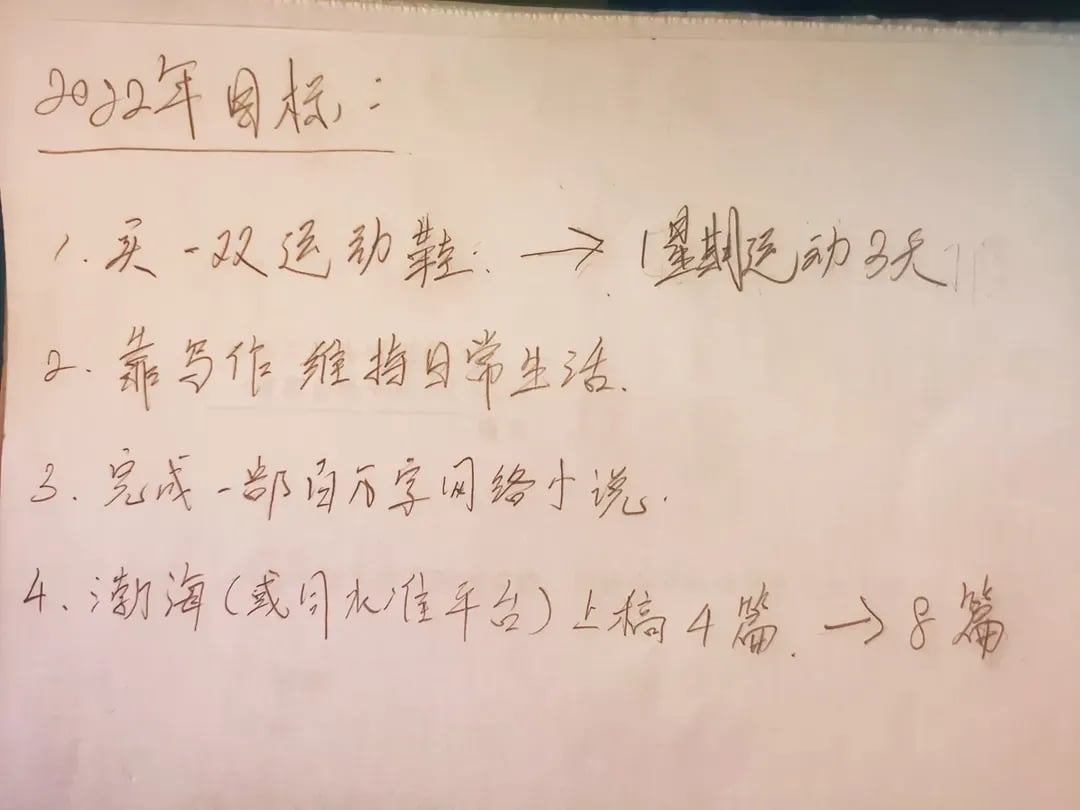 2022年目标:
1. 买一双运动鞋. → 1星期运动3天
2. 靠写作维持日常生活.
3. 完成一部百万字网络小说.
4. 渤海(或同水准平台)上稿4篇. → 8篇